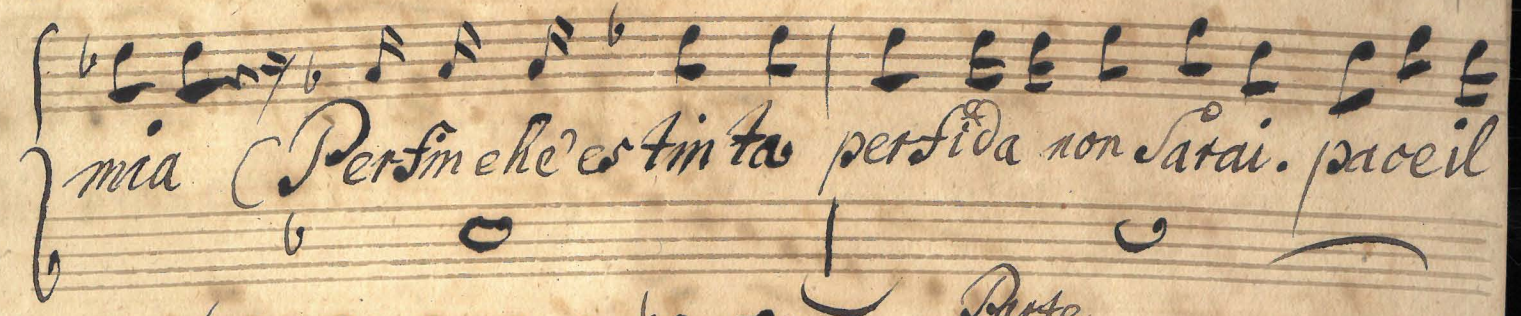 mia (Perfin che' estinta perfida non sarai. pace il
Parte